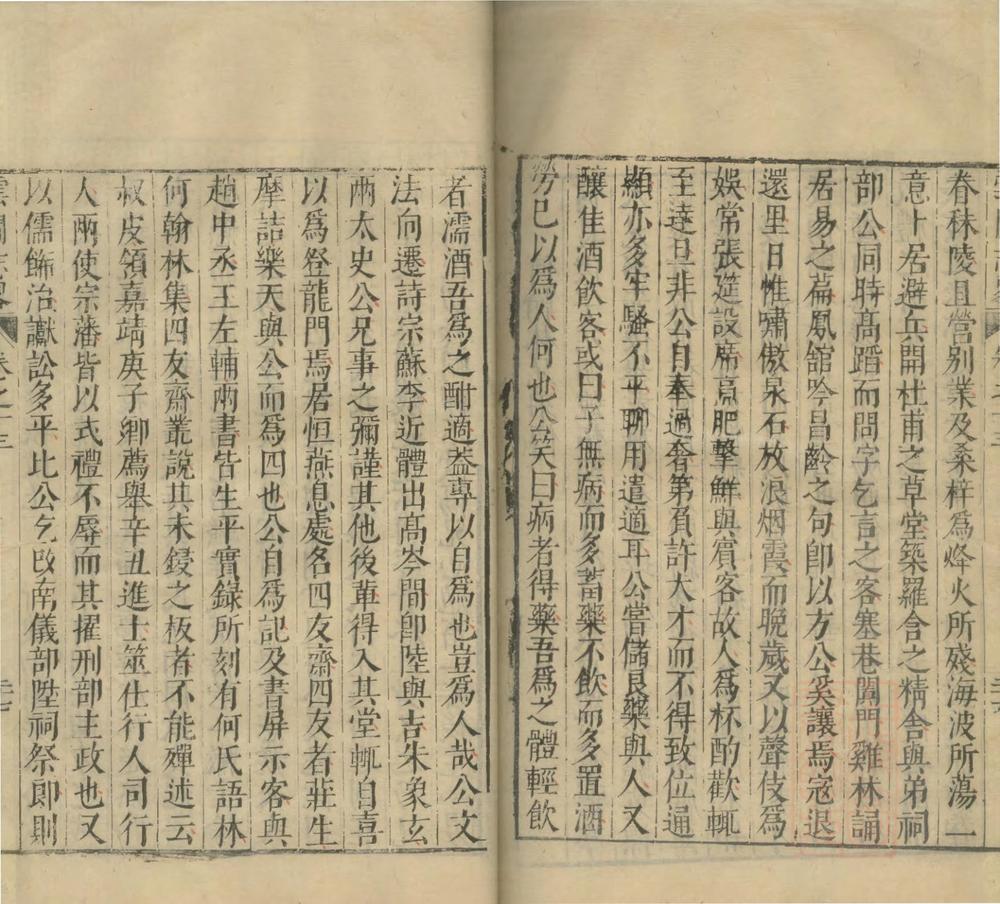 春秣陵且營别業及桑梓爲烽火所殘海波所蕩一
意卜居避兵開杜甫之草堂築羅含之精舎與弟祠
部公同時髙蹈而問字乞言之客塞巷闐門雞林誦
居易之篇鳳舘吟昌齡之句卽以方公奚讓焉寇退
還里日惟嘯傲泉石放浪烟霞而晩歳又以聲伎爲
娛常張筵設席烹肥擊鮮與賓客故人爲杯酌歡輒
至達旦非公自奉過奢第負許大才而不得致位通
顯亦多牢騷不平聊用遣適耳公嘗儲良藥與人又
釀佳酒飲客或曰子無病而多蓄藥不飲而多置酒
勞己以爲人何也公笑曰病者得藥吾爲之體輕飲
者濡酒吾爲之酣適葢專以自爲也豈爲人哉公文
法向遷詩宗蘇李近體出髙岑間卽陸與吉朱象玄
兩太史公兄事之彌謹其他後軰得入其堂輒自喜
以爲登龍門焉居恒燕息處名四友齋四友者莊生
摩詰樂天與公而爲四也公自爲記及書屏示客與
趙中丞王左輔兩書皆生平實錄所刻有何氏語林
何翰林集四友齋叢說其未鋟之板者不能殫述云
叔皮領嘉靖庚子鄉薦舉辛丑進士筮仕行人司行
人兩使宗藩皆以式禮不辱而其擢刑部主政也又
以儒飾治讞訟多平比公乞改南儀部陞祠祭郎則
雲間志畧 卷之十三